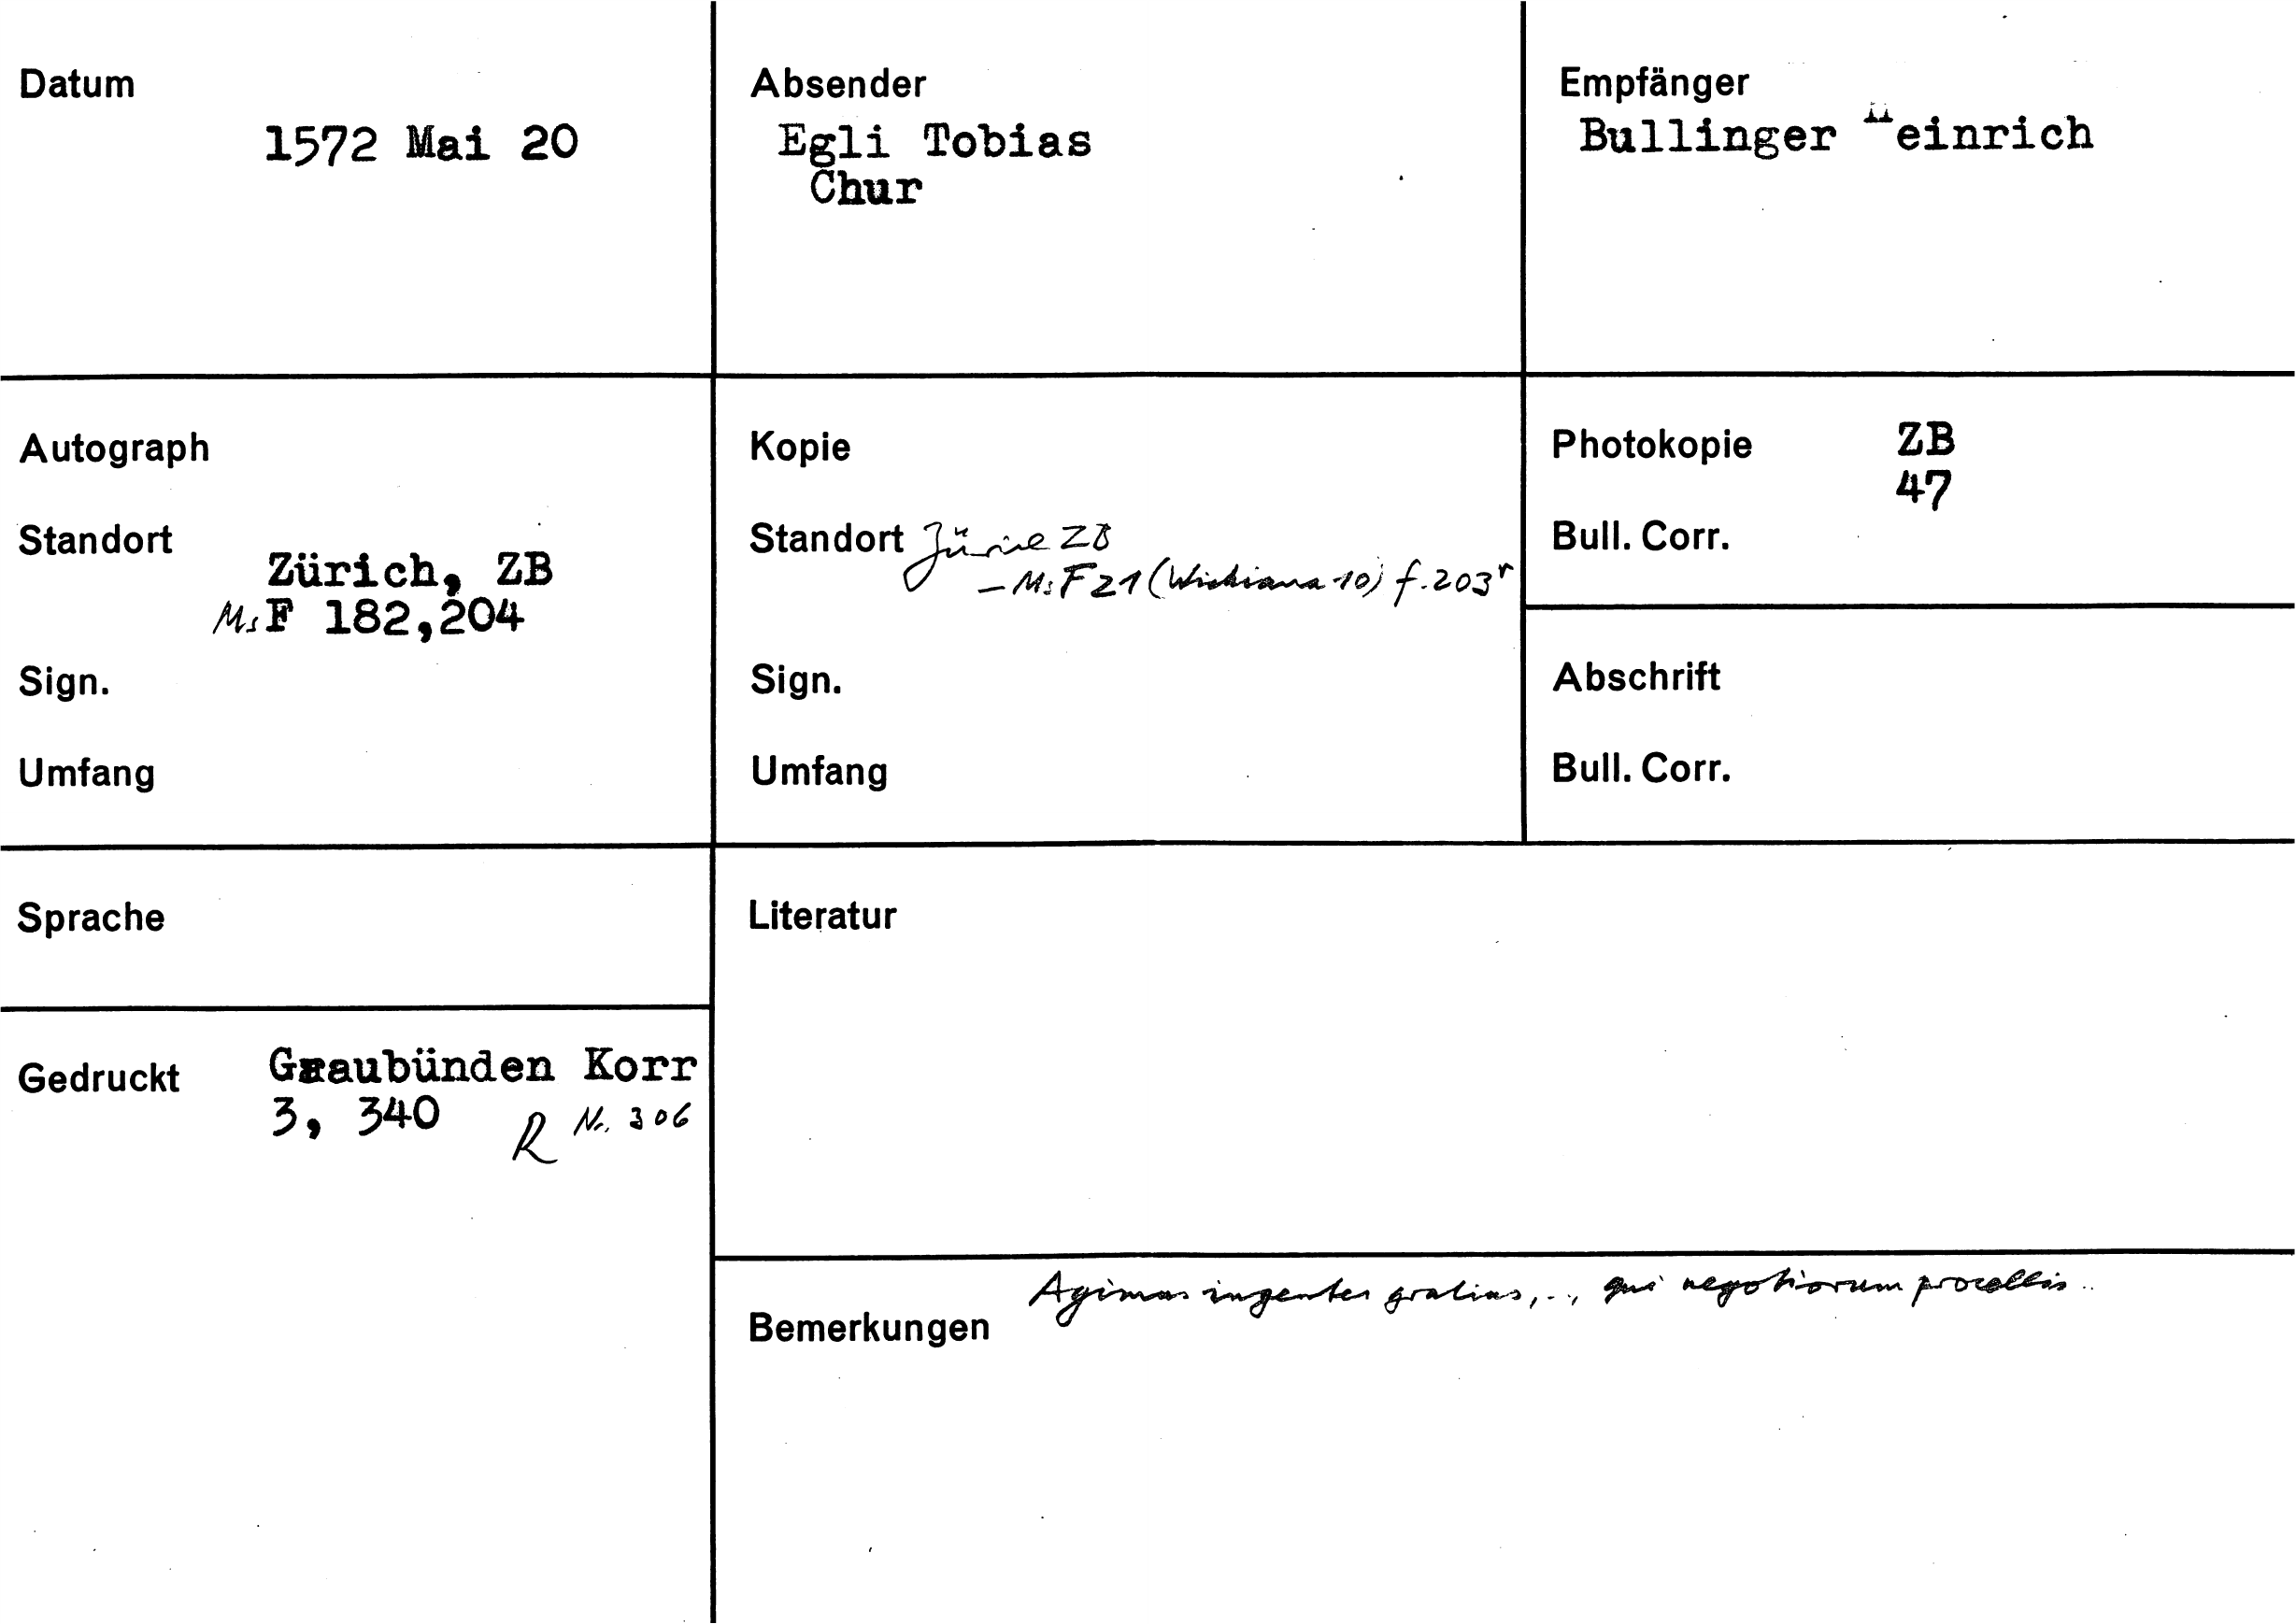 Datum
1572 Mai 20
Absender
Egli Tobias
Chur
Empfänger
Bullinger Heinrich
Autograph
Standort
Zürich, ZB
Ms F 182,204
Sign.
Umfang
Kopie
Standort Zürich ZB
- Ms F 21 (Wickiana 10) f. 203r
Sign.
Umfang
Photokopie ZB
47
Bull. Corr.
Abschrift
Bull. Corr.
Sprache
Gedruckt Graubünden Korr
3, 340 R Nr. 306
Literatur
Bemerkungen Agimus ingentes gratias, .., qui negotiorum procellis ..